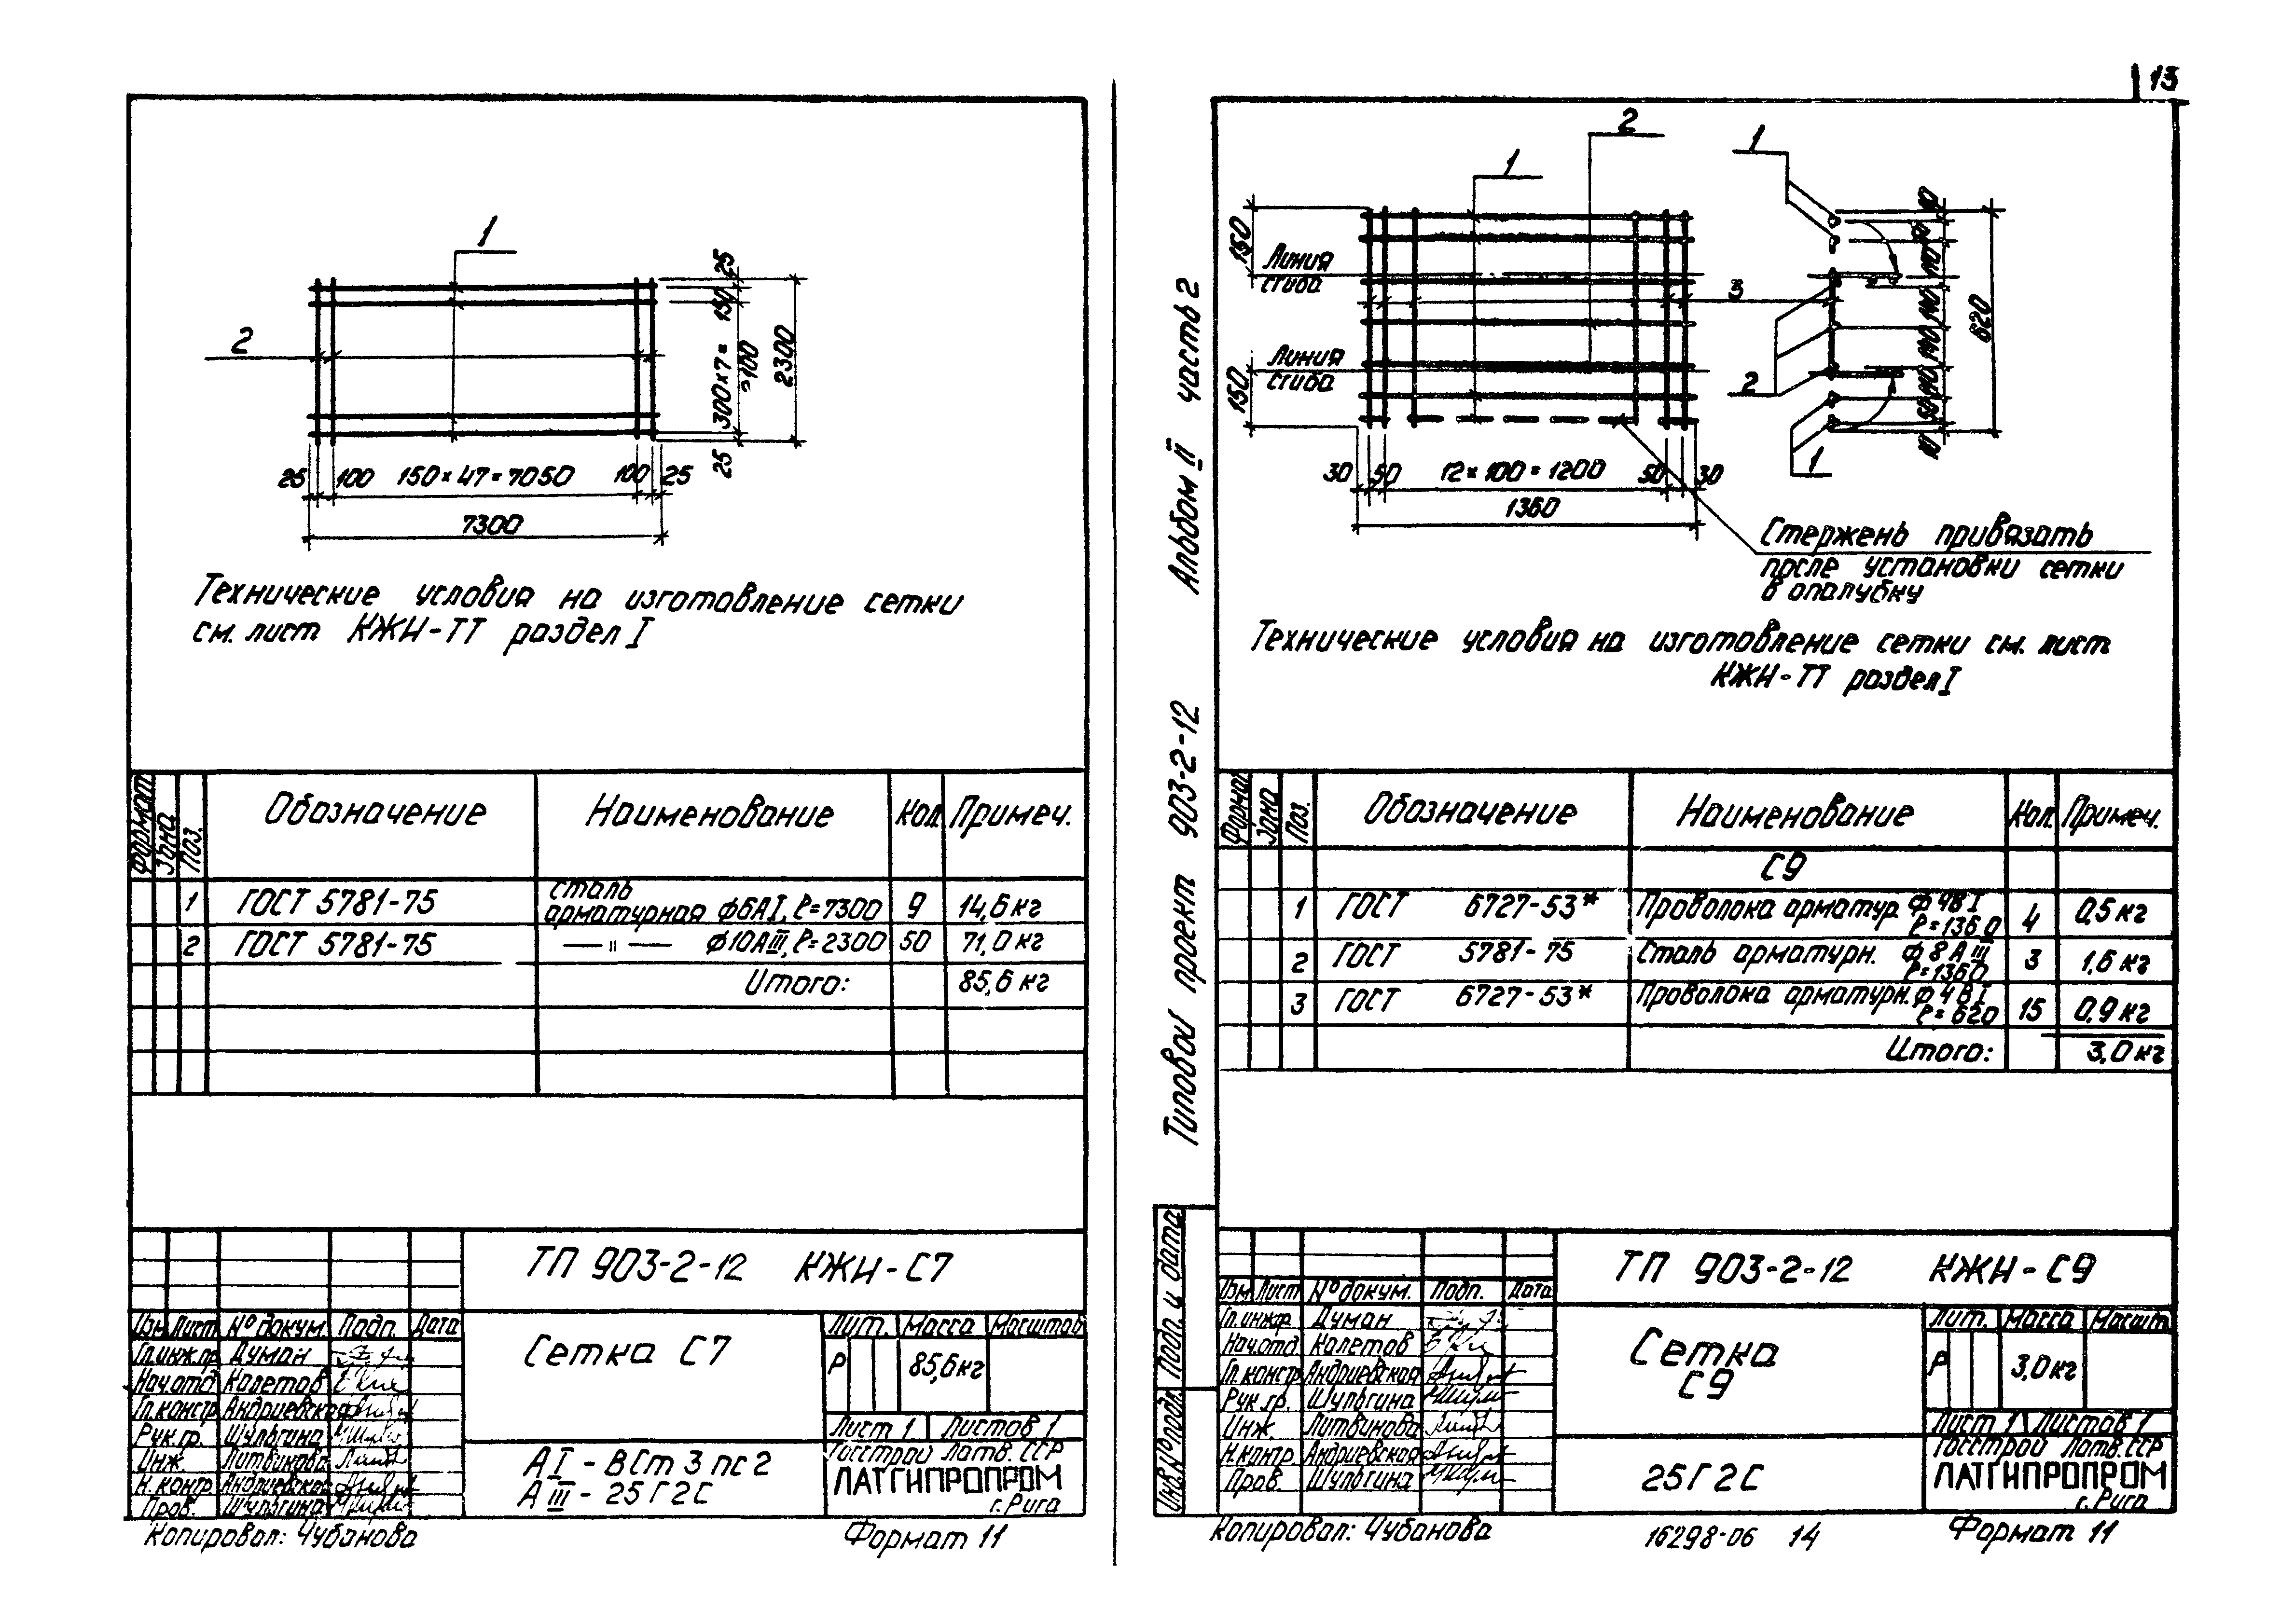 13
1
2
25
150
300×7=
2100
2300
25
25 100 150×47=7050 100 25
7300
Технические условия на изготовление сетки
см. лист КЖИ-ТТ раздел I
Формат Зона Поз. Обозначение Наименование Кол. Примеч.
1 ГОСТ 5781-75 Сталь арматурная ф6АI, ℓ=7300 9 14,6кг
2 ГОСТ 5781-75 — " — ф10АIII, ℓ=2300 50 71,0кг
Итого: 85,6кг
ТП 903-2-12 КЖИ-С7
Изм Лист № докум. Подп. Дата
Гл.инж.пр Думан
Нач.отд Калетов
Гл.констр Андриевская
Рук.гр. Шульгина
Инж Литвинова
Н.контр. Андриевская
Пров. Шульгина
Сетка С7
Лит. Масса Масштаб
Р 85,6кг
Лист 1 Листов 1
АI - ВСт3пс2
АIII - 25Г2С
Госстрой Латв.ССР
ЛАТГИПРОПРОМ
г.Рига
Копировал: Чубанова Формат 11
Типовой проект 903-2-12 Альбом II часть 2
Подп. и дата
Инв.№подл.
2
1
1
150
Линия
сгиба
3
Линия
сгиба
150
2
1
10
50
110
140
140
110
50
10
620
30 50 12×100=1200 50 30
1360
Стержень привязать
после установки сетки
в опалубку
Технические условия на изготовление сетки см. лист
КЖИ-ТТ раздел I
Формат Зона Поз. Обозначение Наименование Кол. Примеч.
С9
1 ГОСТ 6727-53* Проволока арматур. ф4ВI ℓ=1360 4 0,5кг
2 ГОСТ 5781-75 Сталь арматурн. ф8АIII ℓ=1360 3 1,6кг
3 ГОСТ 6727-53* Проволока арматурн. ф4ВI ℓ=620 15 0,9кг
Итого: 3,0кг
ТП 903-2-12 КЖИ-С9
Изм Лист № докум. Подп. Дата
Гл.инжпр Думан
Нач.отд Калетов
Гл.констр Андриевская
Рук.гр. Шульгина
Инж. Литвинова
Н.контр. Андриевская
Пров. Шульгина
Сетка
С9
Лит. Масса Масшт.
Р 3,0кг
Лист 1 Листов 1
25Г2С
Госстрой Латв.ССР
ЛАТГИПРОПРОМ
г.Рига
Копировал: Чубанова 16298-06 14 Формат 11